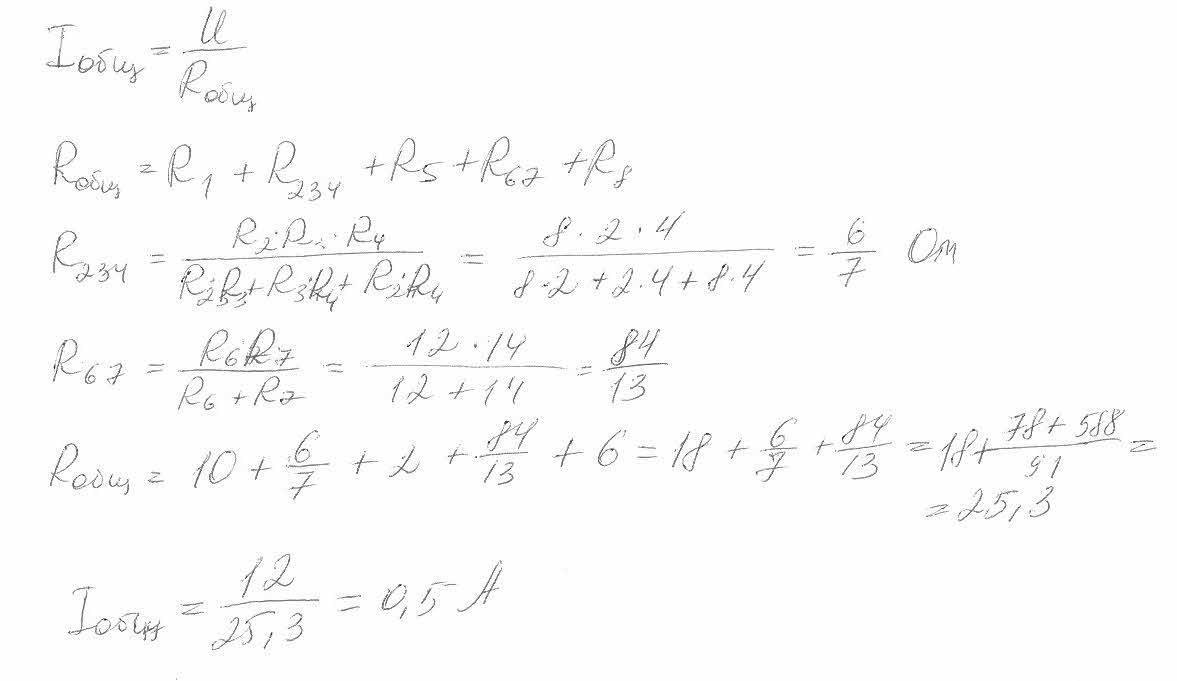 Iобщ = U / Rобщ
Rобщ = R1 + R234 + R5 + R67 + R8
R234 = R2·R3·R4 / R2·R3 + R3·R4 + R2·R4 = 8·2·4 / 8·2 + 2·4 + 8·4 = 6/7 Ом
R67 = R6·R7 / R6 + R7 = 12·14 / 12 + 14 = 84/13
Rобщ = 10 + 6/7 + 2 + 84/13 + 6 = 18 + 6/7 + 84/13 = 18 + 78 + 588 / 91 =
= 25,3
Iобщ = 12 / 25,3 = 0,5 А